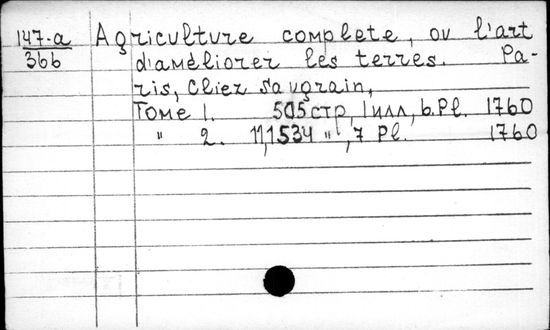 147-a Agriculture complete, ou l'art
366 d'améliorer les terres. Pa-
ris, Cliez Saugrain,
Tome 1. 505 стр, 1 илл, 6. Pl. 1760
" 2. 11,1534 ", 7 Pl. 1760